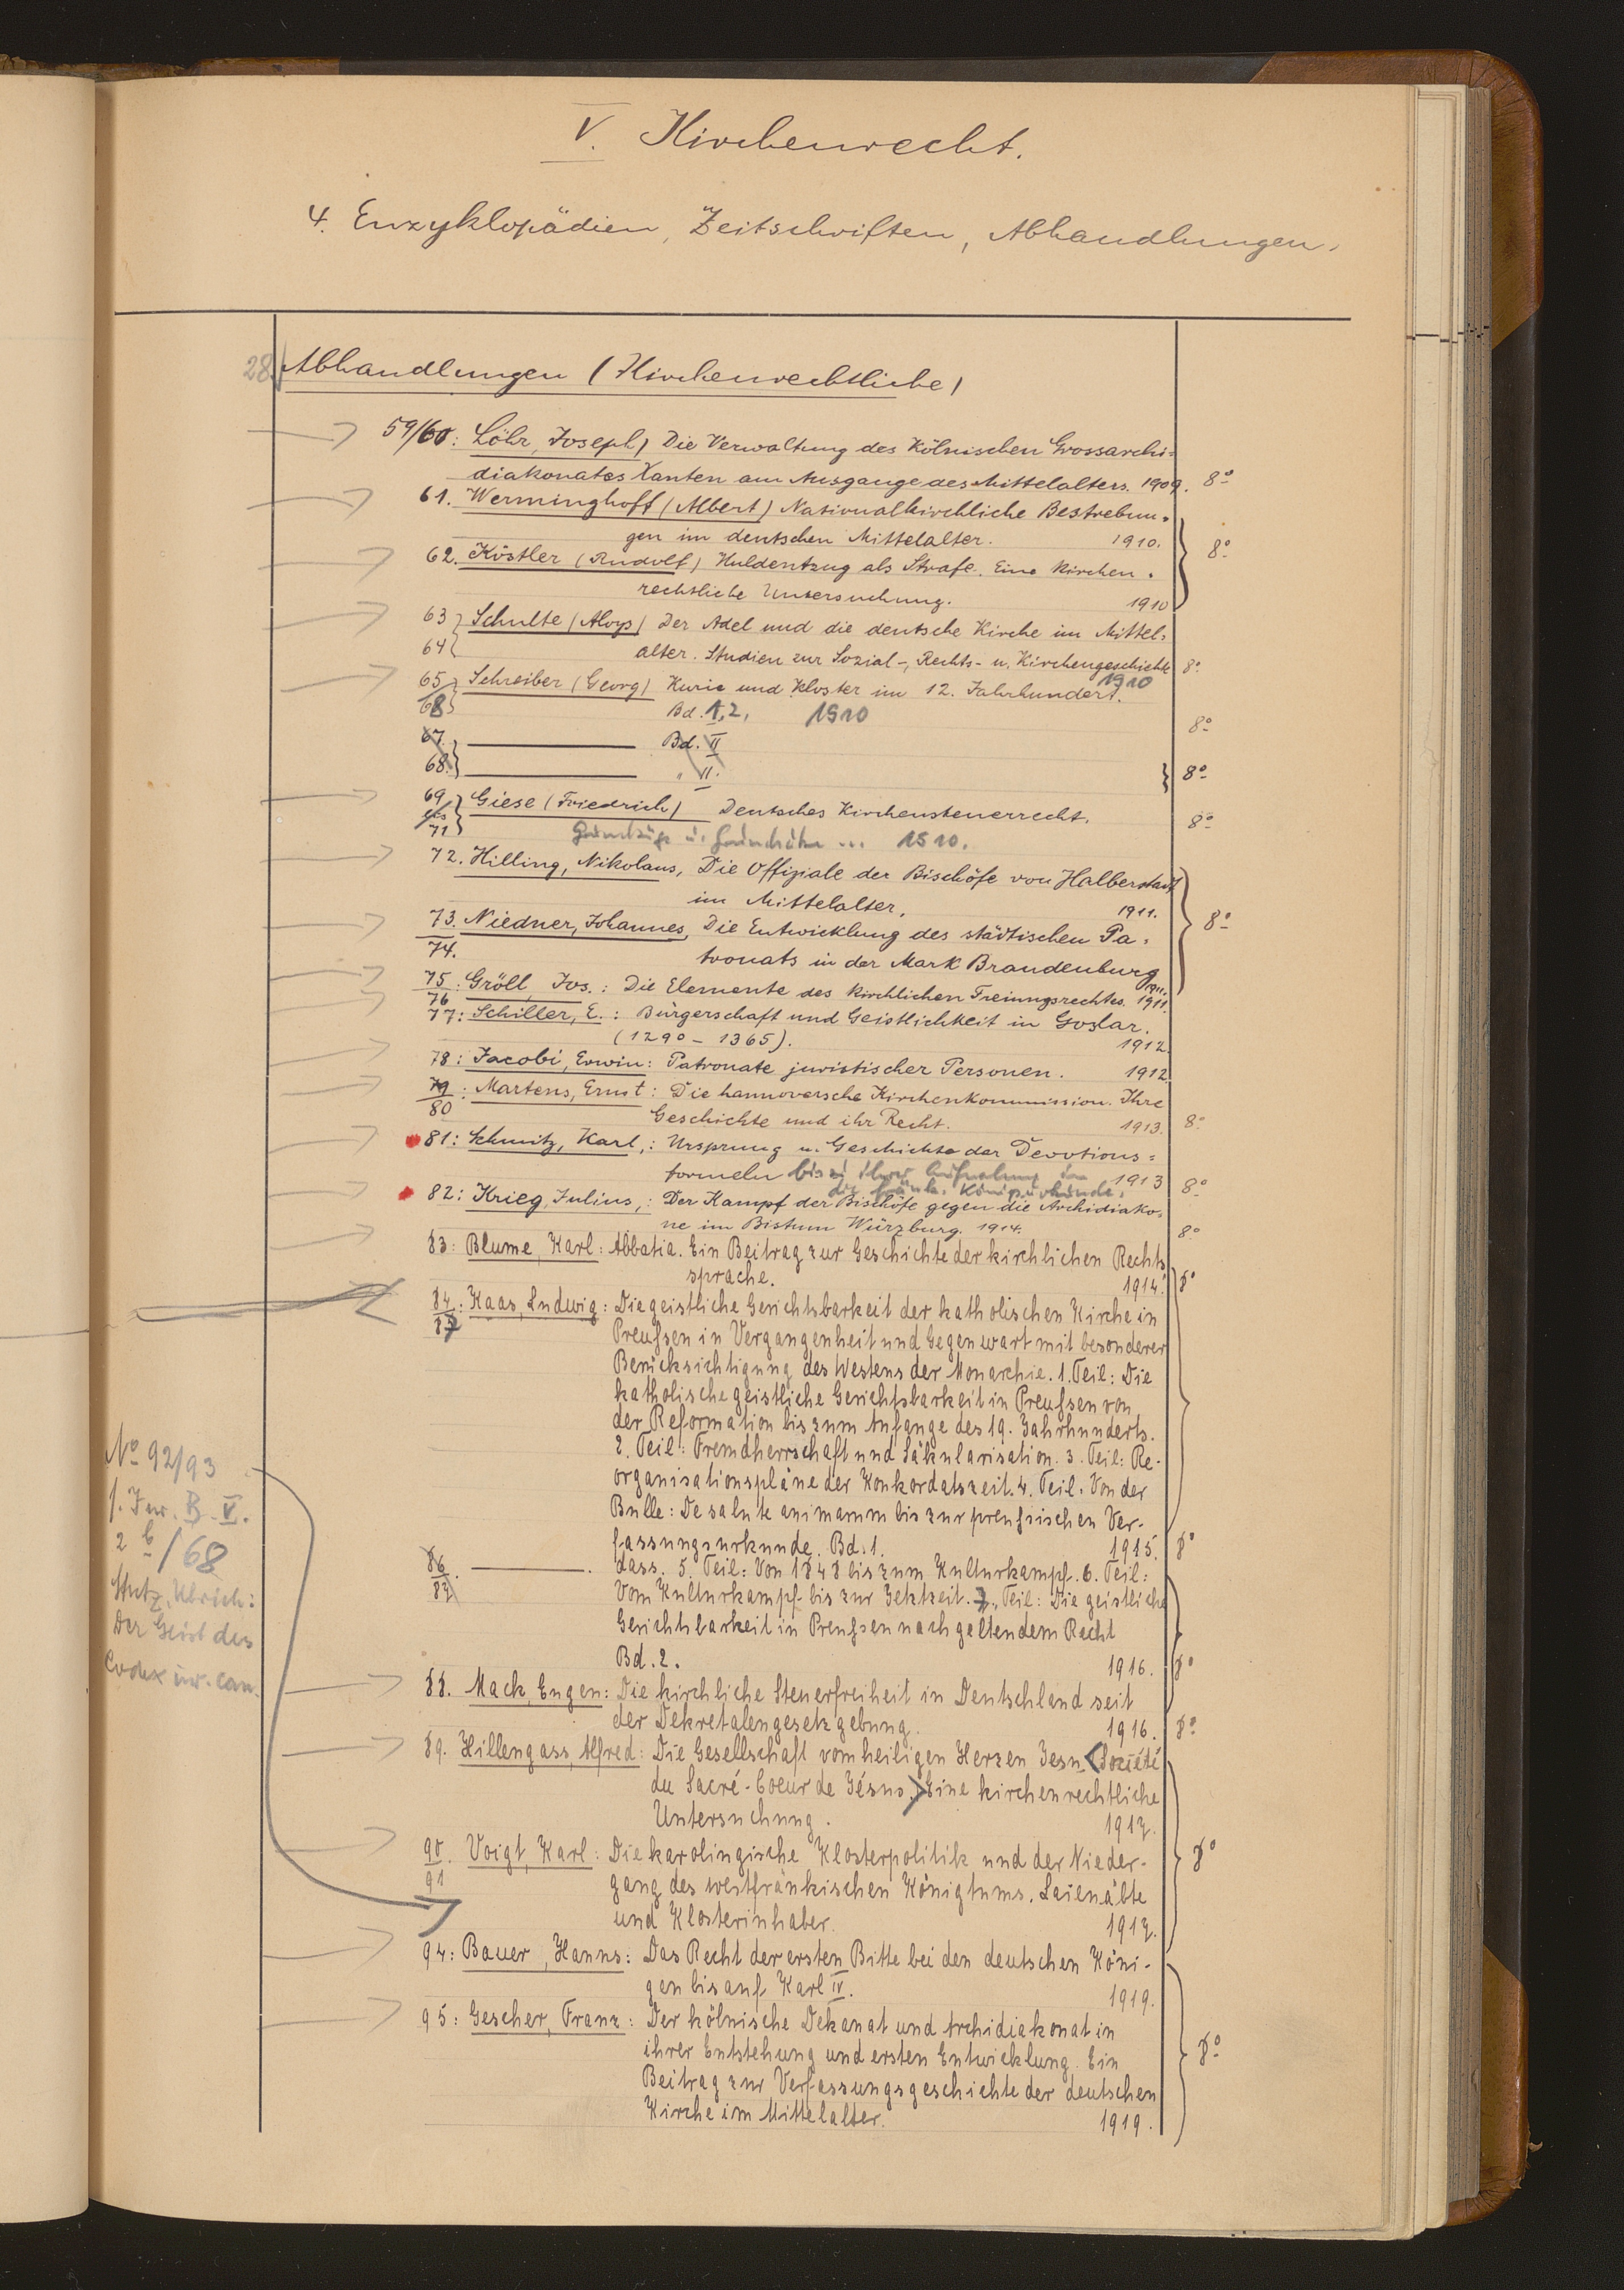 V. Kirchenrecht.
4. Enzyklopädien, Zeitschriften, Abhandlungen.
28. Abhandlungen (Kirchenrechtliche)
59/60: Löhr, Joseph) Die Verwaltung des Kölnischen Grossarchi=
diakonates Xanten am Ausgange des Mittelalters. 1909. 8°
61. Werminghoff (Albert) Nationalkirchliche Bestrebun=
gen im deutschen Mittelalter. 1910.
8°
62. Köstler (Rudolf) Huldentzug als Strafe. Eine kirchen=
rechtliche Untersuchung. 1910
63 Schulte (Aloys) Der Adel und die deutsche Kirche im Mittel=
64 alter. Studien zur Sozial-, Rechts- u. Kirchengeschichte 8°
1910
65 Schreiber (Georg) Kurie und Kloster im 12. Jahrhundert.
68 Bd. 1,2, 1910 8°
67. Bd. II
68. " II. 8°
69 Giese (Friedrich) Deutsches Kirchensteuerrecht.
bis 8°
71 Grundzüge u. Grundsätze ... 1910.
72. Hilling, Nikolaus, Die Offiziale der Bischöfe von Halberstadt
im Mittelalter. 1911.
8°
73. Niedner, Johannes, Die Entwicklung des städtischen Pa=
74. tronats in der Mark Brandenburg
1911.
75: Gröll, Jos.: Die Elemente des kirchlichen Freiungsrechtes. 1911.
76
77: Schiller, E.: Bürgerschaft und Geistlichkeit in Goslar.
(1290 - 1365). 1912.
78: Jacobi, Erwin: Patronate juristischer Personen. 1912.
79: Martens, Ernst: Die hannoversche Kirchenkommission. Ihre
80 Geschichte und ihr Recht. 1913. 8°
81: Schmitz, Karl,: Ursprung u. Geschichte der Devotions=
formeln bis zu ihrer Aufnahme in 1913 8°
die fränk. Königsurkunde.
82: Krieg, Julius,: Der Kampf der Bischöfe gegen die Archidiako=
ne im Bistum Würzburg. 1914. 8°
83: Blume, Karl: Abbatia. Ein Beitrag zur Geschichte der kirchlichen Rechts
sprache. 1914. 8°
84: Kaas, Ludwig: Die geistliche Gerichtsbarkeit der katholischen Kirche in
87 Preußen in Vergangenheit und Gegenwart mit besonderer
Berücksichtigung des Westens der Monarchie. 1. Teil: Die
katholische geistliche Gerichtsbarkeit in Preußen von
der Reformation bis zum Anfange des 19. Jahrhunderts.
2. Teil: Fremdherrschaft und Säkularisation. 3. Teil: Re-
organisationspläne der Konkordatszeit. 4. Teil. Von der
Bulle: De salute animarum bis zur preußischen Ver-
fassungsurkunde. Bd. 1. 1915. 8°
86. dass. 5. Teil: Von 1848 bis zum Kulturkampf. 6. Teil:
87 Vom Kulturkampf bis zur Jetztzeit. 7. Teil: Die geistliche
Gerichtsbarkeit in Preußen nach geltendem Recht
Bd. 2. 1916. 8°
88. Mack, Eugen: Die kirchliche Steuerfreiheit in Deutschland seit
der Dekretalengesetzgebung. 1916. 8°
89. Hillengass, Alfred: Die Gesellschaft vom heiligen Herzen Jesu (Société
du Sacré-Coeur de Jésus.) Eine kirchenrechtliche
Untersuchung. 1917.
8°
90. Voigt, Karl: Die karolingische Klosterpolitik und der Nieder-
91 gang des westfränkischen Königtums. Laienäbte
und Klosterinhaber. 1917.
94: Bauer, Hanns: Das Recht der ersten Bitte bei den deutschen Köni-
gen bis auf Karl IV. 1919.
95: Gescher, Franz: Der kölnische Dekanat und Archidiakonat in
8°
ihrer Entstehung und ersten Entwicklung. Ein
Beitrag zur Verfassungsgeschichte der deutschen
Kirche im Mittelalter. 1919.
No 92/93
s. Inv. B. V.
2 b/68
Stutz, Ulrich:
Der Geist des
Codex iur. can.